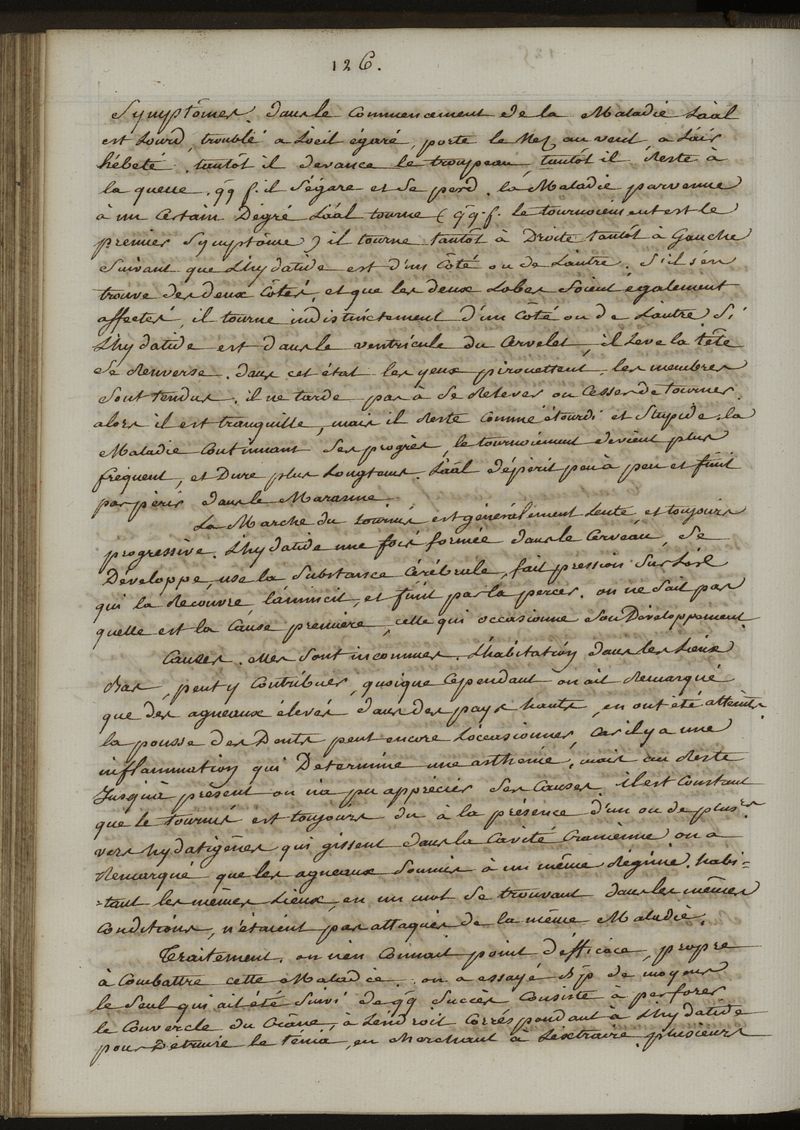 126.
Symptômes. dans le commencement de la Maladie l'aāl
est Lourd, troublé a L'oeil égaré, porte le Nez au vent, a L'air
hébeté. tantôt il devance le troupeau, tantôt il Reste à
la queue. qq f. il S'égare et se perd. la Maladie parvenue
à un Certain Dégré L'aāl tourne (qq. f. le tournoiement est le
premier Symptôme) il tourne tantôt à Droite tantôt à Gauche
Suivant que L'hydatide est d'un Côté ou de L'autre. S'il s'en
trouve des deux Côtés, et que les deux Lobes Soient également
affectés, il tourne indistinctement d'un Côté ou de L'autre. Si
L'hydatide est dans le ventricule du Cervelet, il Leve la tête
Se Renverse. dans cet état les yeux pirouettent, les membres
Sont tendus. il ne tarde pas à Se Relever ou Cesser de tourner.
alors il est tranquille, mais il Reste Comme étourdi et Stupide. la
Maladie Continuant Ses progrès, le tournoiement devient plus
fréquent, et Dure plus Longtems. L'aāl dépérit peu à peu et finit
par périr dans le Marasme.
La Marche du tournis est généralement Lente et toujours
progressive. L'hydatide une fois formée dans le Cerveau, Se
Développe, use la Substance Cérébrale, fait pression Sur L'os
qui la Recouvre, l'amincit, et finit par la percer. on ne Sait pas
quelle est la Cause première, celle qui occasionne Son Développement.
Causes. elles Sont inconnues. L'habitation dans les Lieux
Bas, peut y Contribuer, quoique Cependant on ait Remarqué
que des agneaux élevés dans des pays hauts, en ont été atteints.
la pousse des Dents peut encore L'occasionner, Car il y a une
inflammation qui Détermine une asthénie, mais au Reste
Jusqu'à présent on n'a pu apprécier Ses Causes. il est Constant
que le tournis est toujours du à la présence d'un ou de plusrs
vers hydatigênes qui gissent dans la Cavité Cranienne. on a
Remarqué que les agneaux Soumis à un même Régime, habi-
-tant les mêmes Lieux, en un mot Se trouvant dans les mêmes
Conditions, n'étaient pas attaqués de la même Maladie.
Traitement. on n'en Connait point d'éfficace, propre
à Combattre cette Maladie. on a essayé Bp de moyens
le Seul qui ait été Suivi de qq Succès Consiste à perforer
le Couvercle du Crâne, à L'endroit Corréspondant à L'hydatide
pour Détruire le ténia, en cherchant à L'extraire. plusieurs